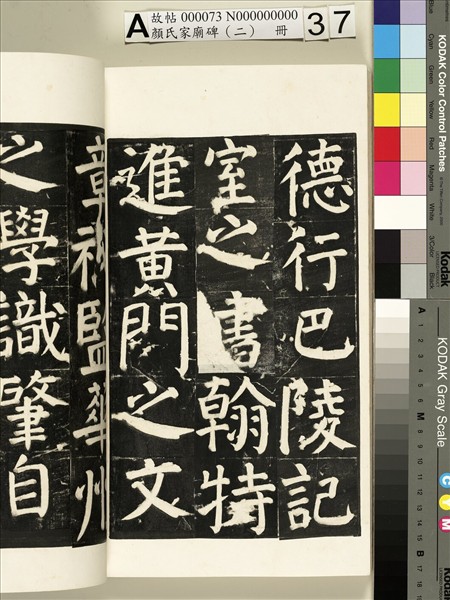 A 故帖 000073 N000000000
顏氏家廟碑（二） 冊
37
德行巴陵記
室之書翰特
進黃門之文
章祕監華州
之學識肇自
KODAK Color Control Patches
Blue
Cyan
Green
Yellow
Red
Magenta
White
3/Color
Black
Kodak
KODAK Gray Scale
A 1 2 3 4 5 6 M 8 9 10 11 12 13 14 15 B 17 18
C Y M
Kodak